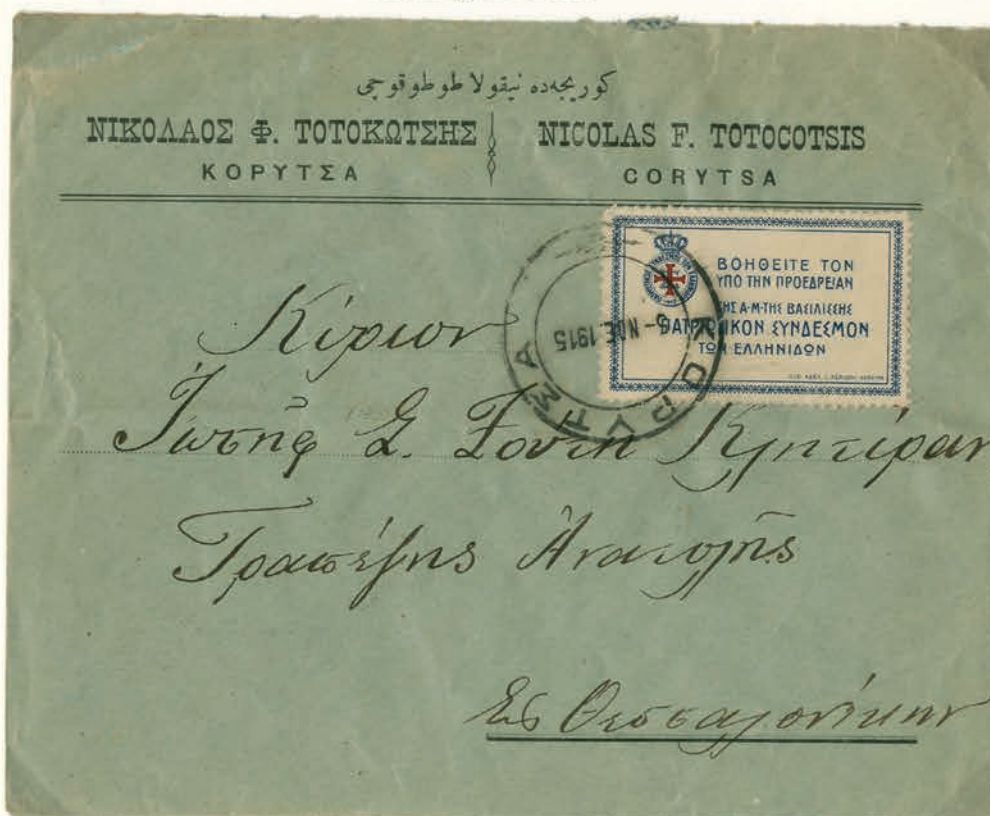 كوريجه‌ده نيقولا طوطوقوچی
ΝΙΚΟΛΑΟΣ Φ. ΤΟΤΟΚΩΤΣΗΣ
ΚΟΡΥΤΣΑ
NICOLAS F. TOTOCOTSIS
CORYTSA
ΒΟΗΘΕΙΤΕ ΤΟΝ
ΥΠΟ ΤΗΝ ΠΡΟΕΔΡΕΙΑΝ
ΤΗΣ Α·Μ·ΤΗΣ ΒΑΣΙΛΙΣΣΗΣ
ΠΑΤΡΙΩΤΙΚΟΝ ΣΥΝΔΕΣΜΟΝ
ΤΩΝ ΕΛΛΗΝΙΔΩΝ
ΚΟΡΥΤΣΑ
ΝΟΕ.1915
Κύριον
Ἰωσὴφ Σ. Κλητῆραν
Τραπέζης Ἀνατολῆς
Εἰς Θεσσαλονίκην